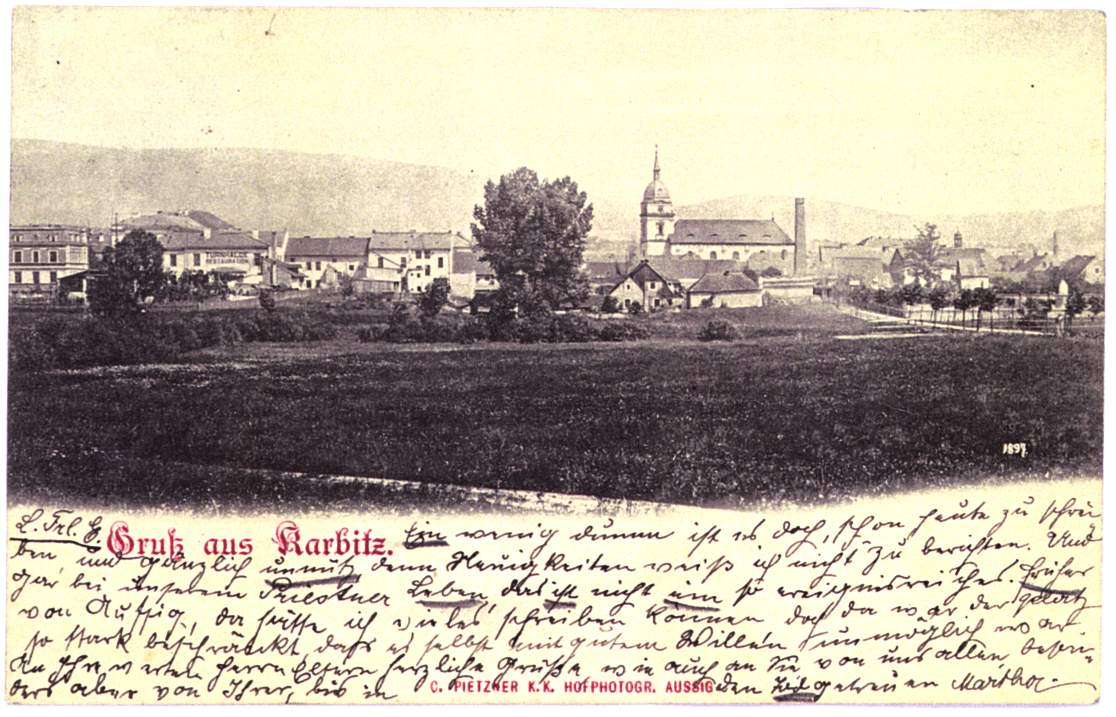 TURNHALLE
RESTAURATION
1897
L. Frl. E.
Gruß aus Karbitz.
Ein wenig dumm ist es doch, schon heute zu schrei-
ben, und gänzlich unnütz denn Neuigkeiten weiß ich nicht zu berichten. Und
gar bei unserem Priestner Leben, das ist nicht ein so ereignisreiches. Früher
von Aussig, da hätte ich vieles schreiben können doch da war der Platz
so stark beschränkt, dass es selbst mit gutem Willen unmöglich war.
An Ihre werten Herrn Eltern herzliche Grüße wie auch an Sie von uns allen, beson-
ders aber von Ihrer, bis in den Tod getreuen Martha.
C. PIETZNER K.K. HOFPHOTOGR. AUSSIG